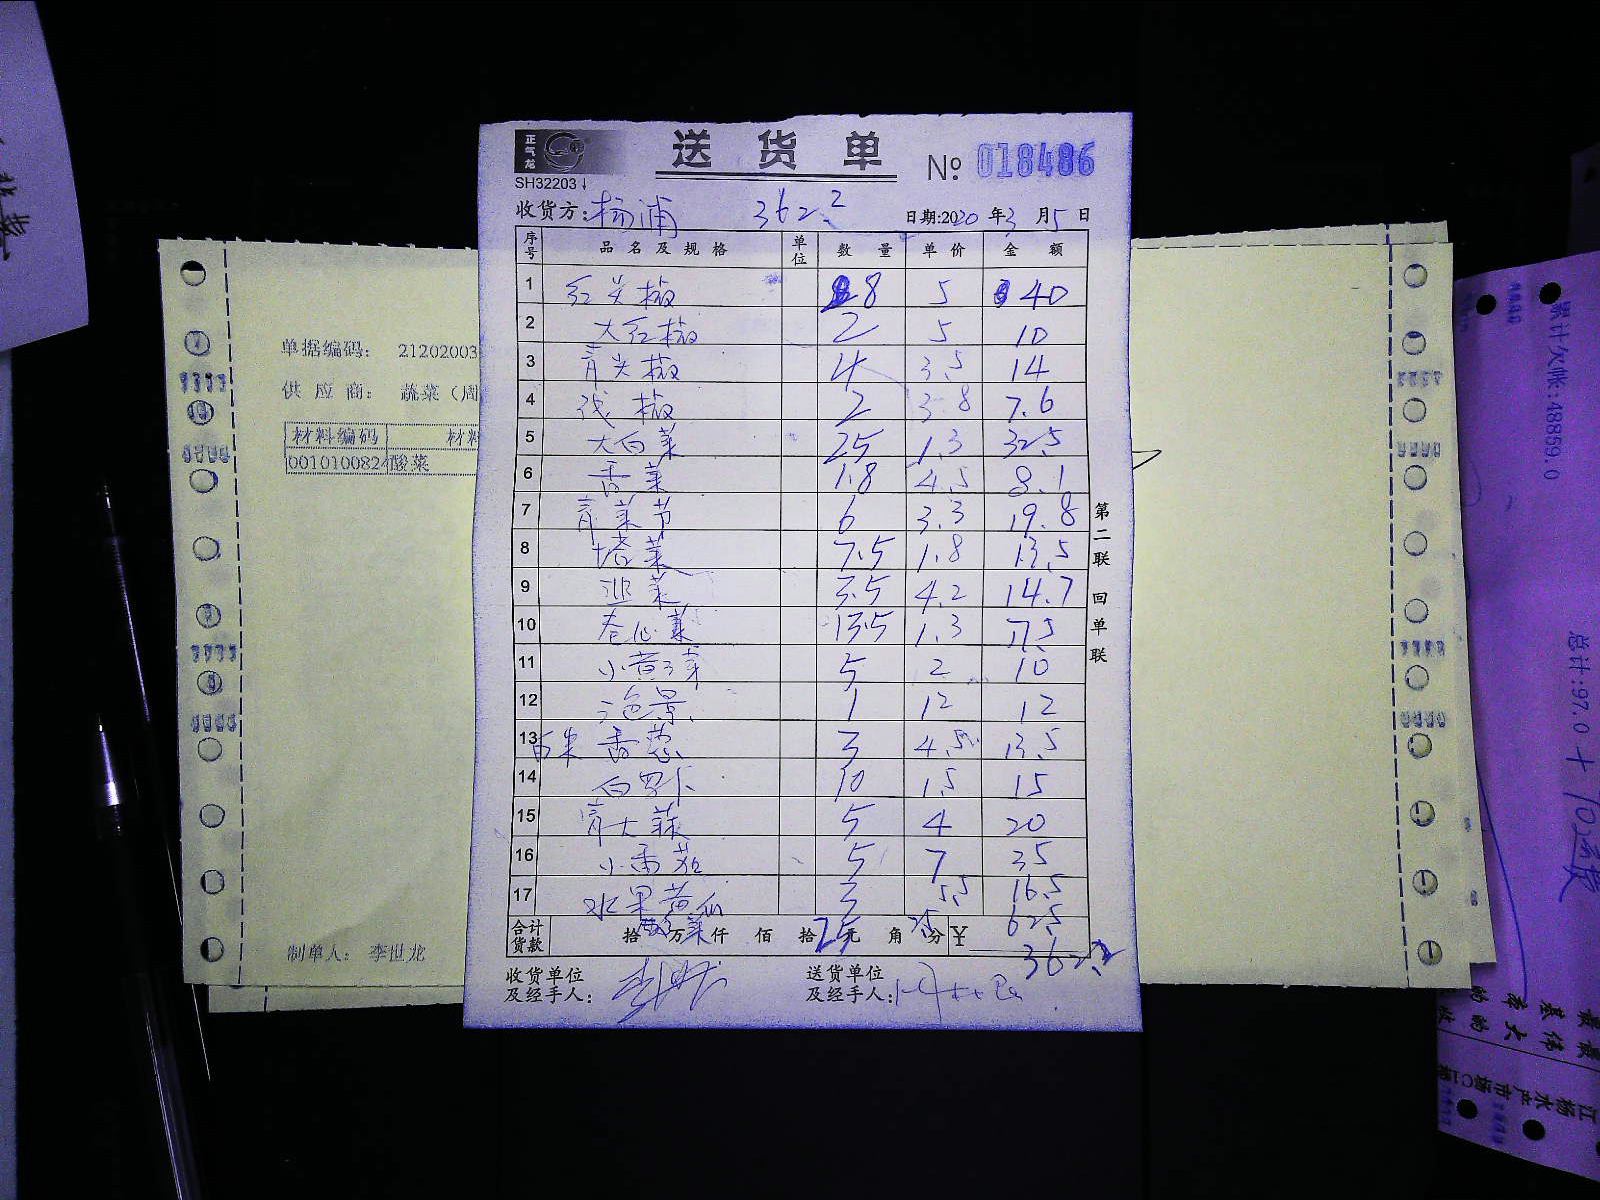 正气龙
送货单
№ 018486
SH32203
收货方: 杨浦 362.2 日期:2020年3月5日
序号 品名及规格 单位 数量 单价 金额
1 红尖椒 8 5 40
2 大红椒 2 5 10
3 青尖椒 4 3.5 14
4 线椒 2 3.8 7.6
5 大白菜 25 1.3 32.5
6 香菜 1.8 4.5 8.1
7 青菜节 6 3.3 19.8
8 塔菜 7.5 1.8 13.5
9 韭菜 3.5 4.2 14.7
10 卷心菜 13.5 1.3
11 小黄 菜 5 2 10
12 1 12 12
13 香葱 3 4.5 13.5
14 白罗卜 10 1.5 15
15 青大蒜 5 4 20
16 小番茄 5 7 35
17 水果黄瓜 3 5.5 16.5
合计货款 拾 万 仟 佰 拾 元 角 分 ¥
菜 25 2.5 62.5
362.2
收货单位及经手人:
送货单位及经手人:
第二联 回单联
单据编码: 21202003
供应商: 蔬菜(周
材料编码 材料
0010100824 酸菜
制单人: 李世龙
累计欠帐:48859.0
总计:97.0+10
江杨水产市场C1